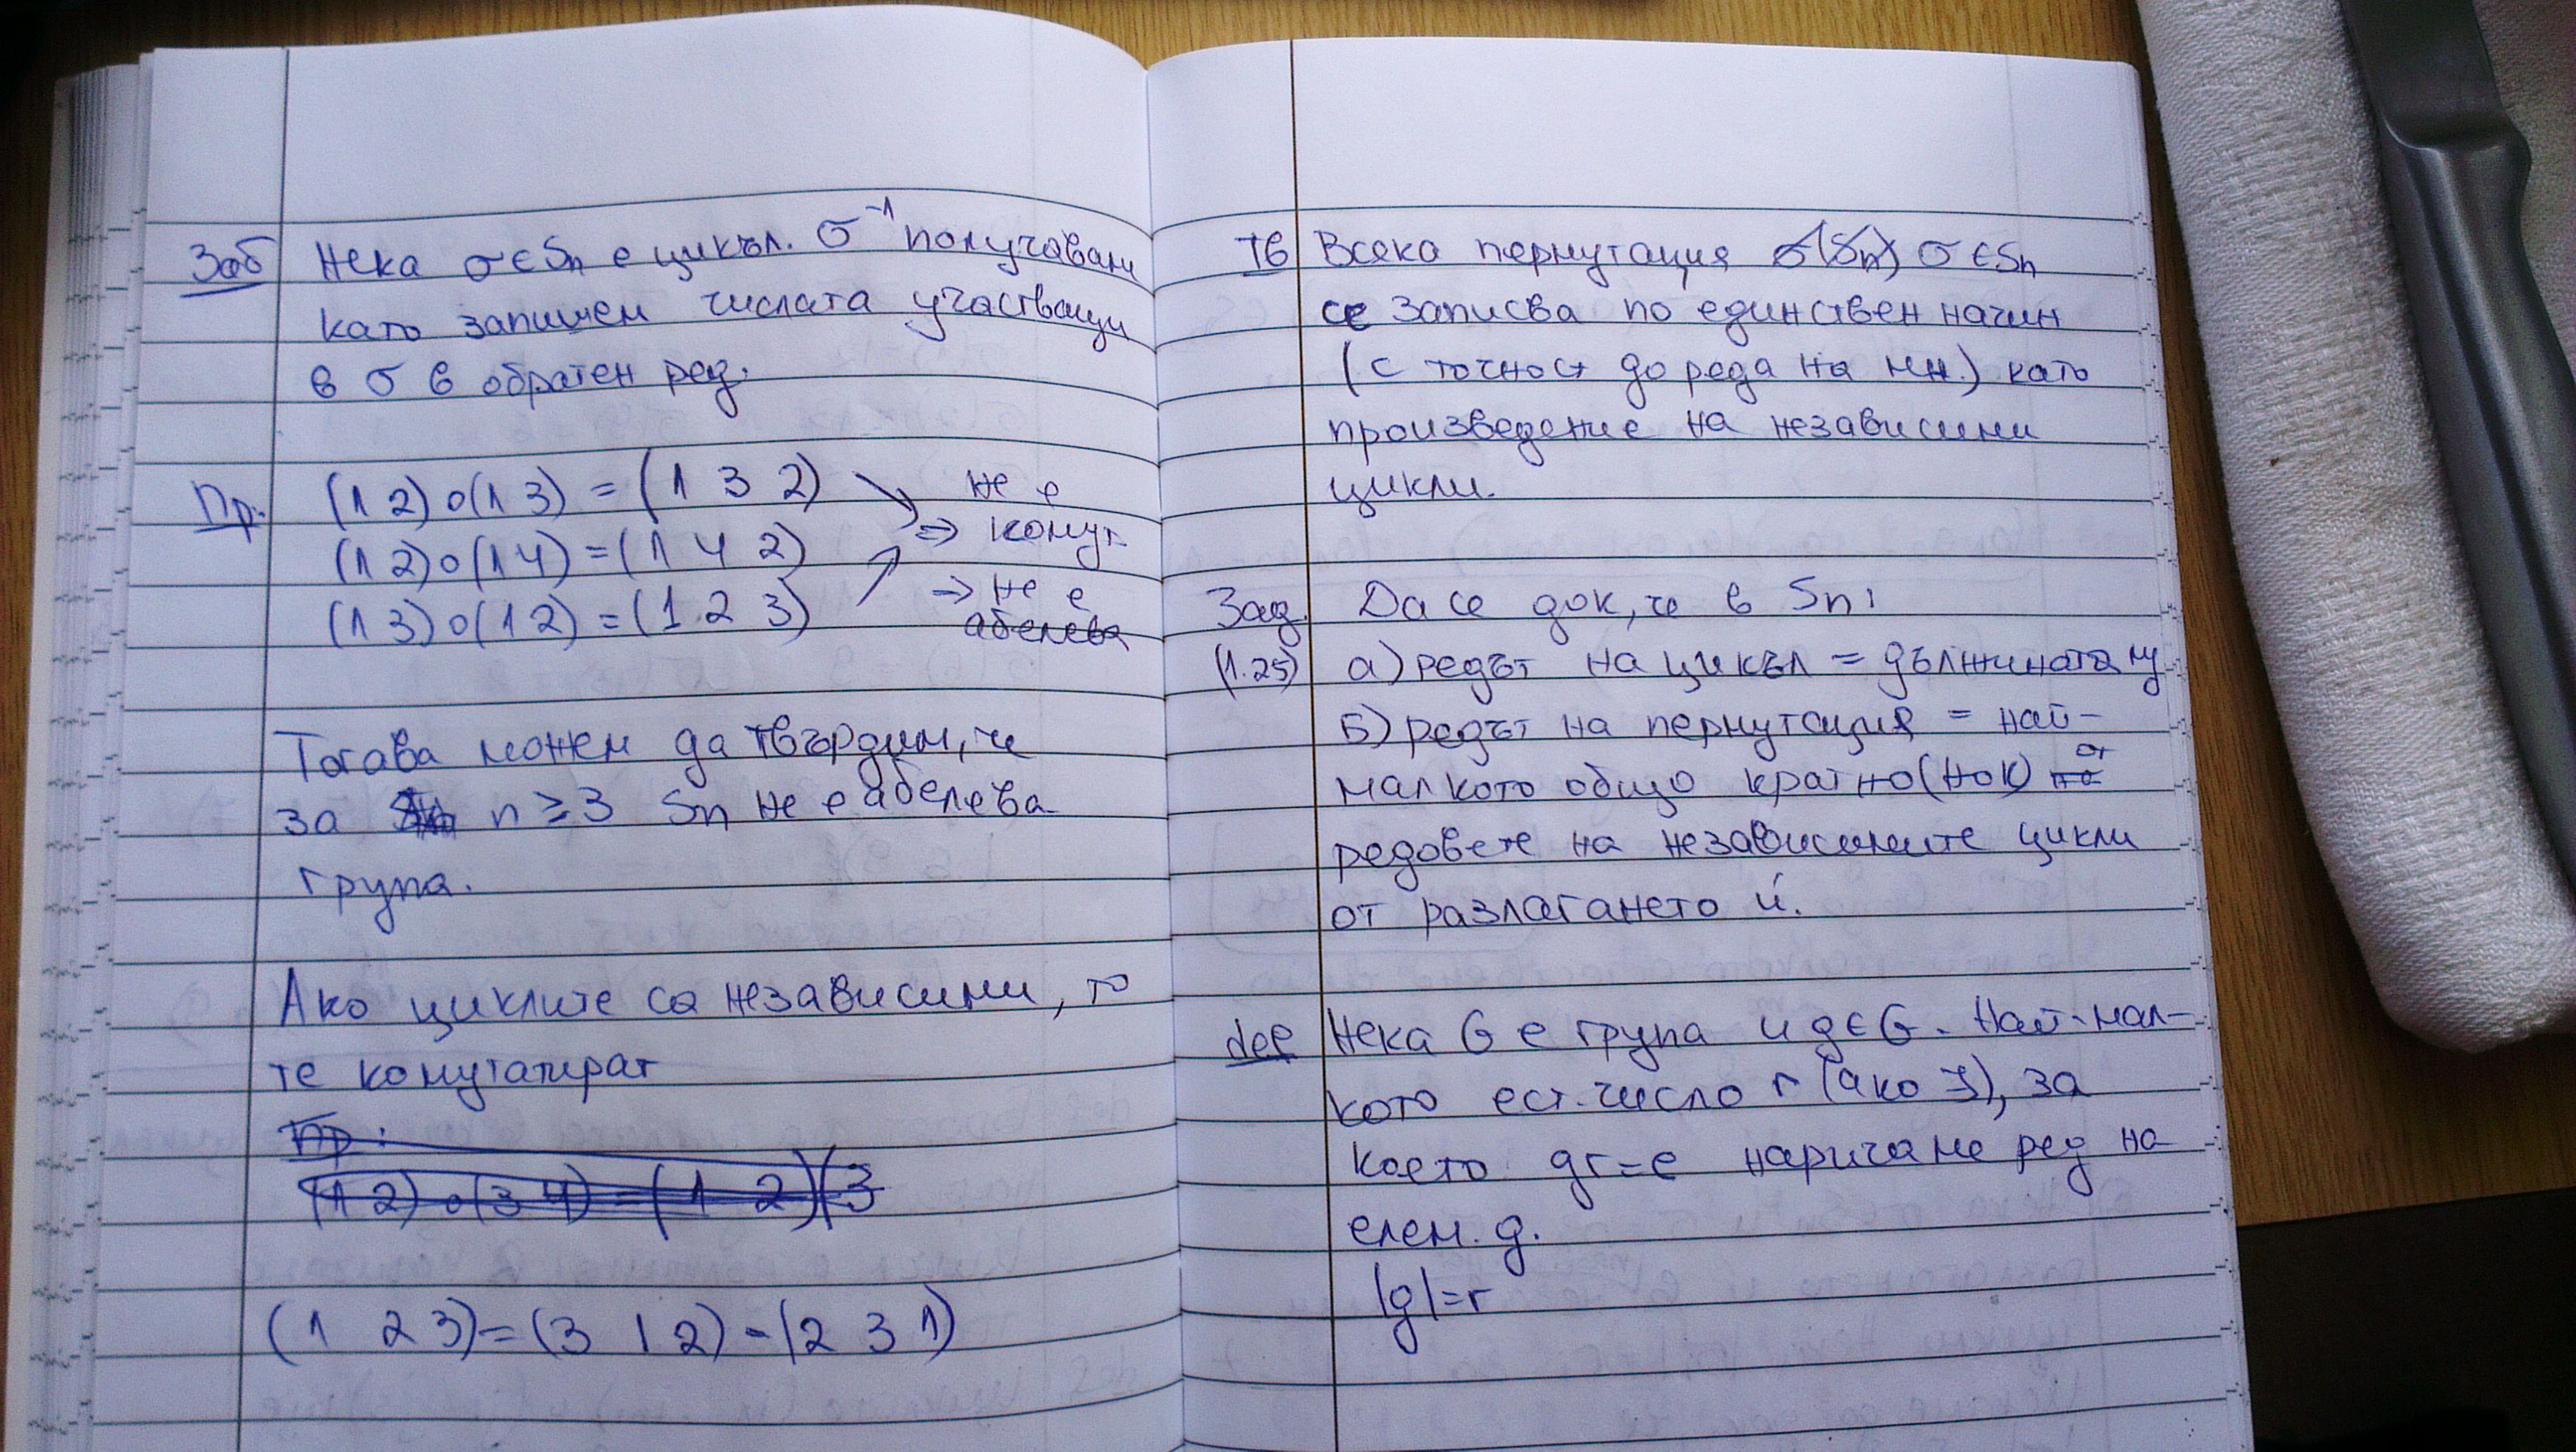 Заб Нека σ ∈ Sn е цикъл. σ⁻¹ получавам
като запишем числата участващи
в σ в обратен ред.
Пр. (1 2) o (1 3) = (1 3 2)
(1 2) o (1 4) = (1 4 2)
(1 3) o (1 2) = (1 2 3)
не е
=> комут.
-> не е
абелева
Тогава можем да твърдим, че
за n ≥ 3 Sn не е абелева
група.
Ако циклите са независими, то
те комутират
Пр:
(1 2) o (3 4) = (1 2)(3
(1 2 3) = (3 1 2) = (2 3 1)
Тв Всяка пермутация σ(Sn) σ ∈ Sn
се записва по единствен начин
(с точност до реда на мн.) като
произведение на независими
цикли.
Зад. Да се док, че в Sn:
(1.25) а) редът на цикъл = дължината му
Б) редът на пермутация = най-
малкото общо кратно (НОК) на от
редовете на независимите цикли
от разлагането ѝ.
def Нека G е група и g ∈ G. Най-мал-
кото ест. число r (ако ∃), за
което gr = e наричаме ред на
елем. g.
|g| = r